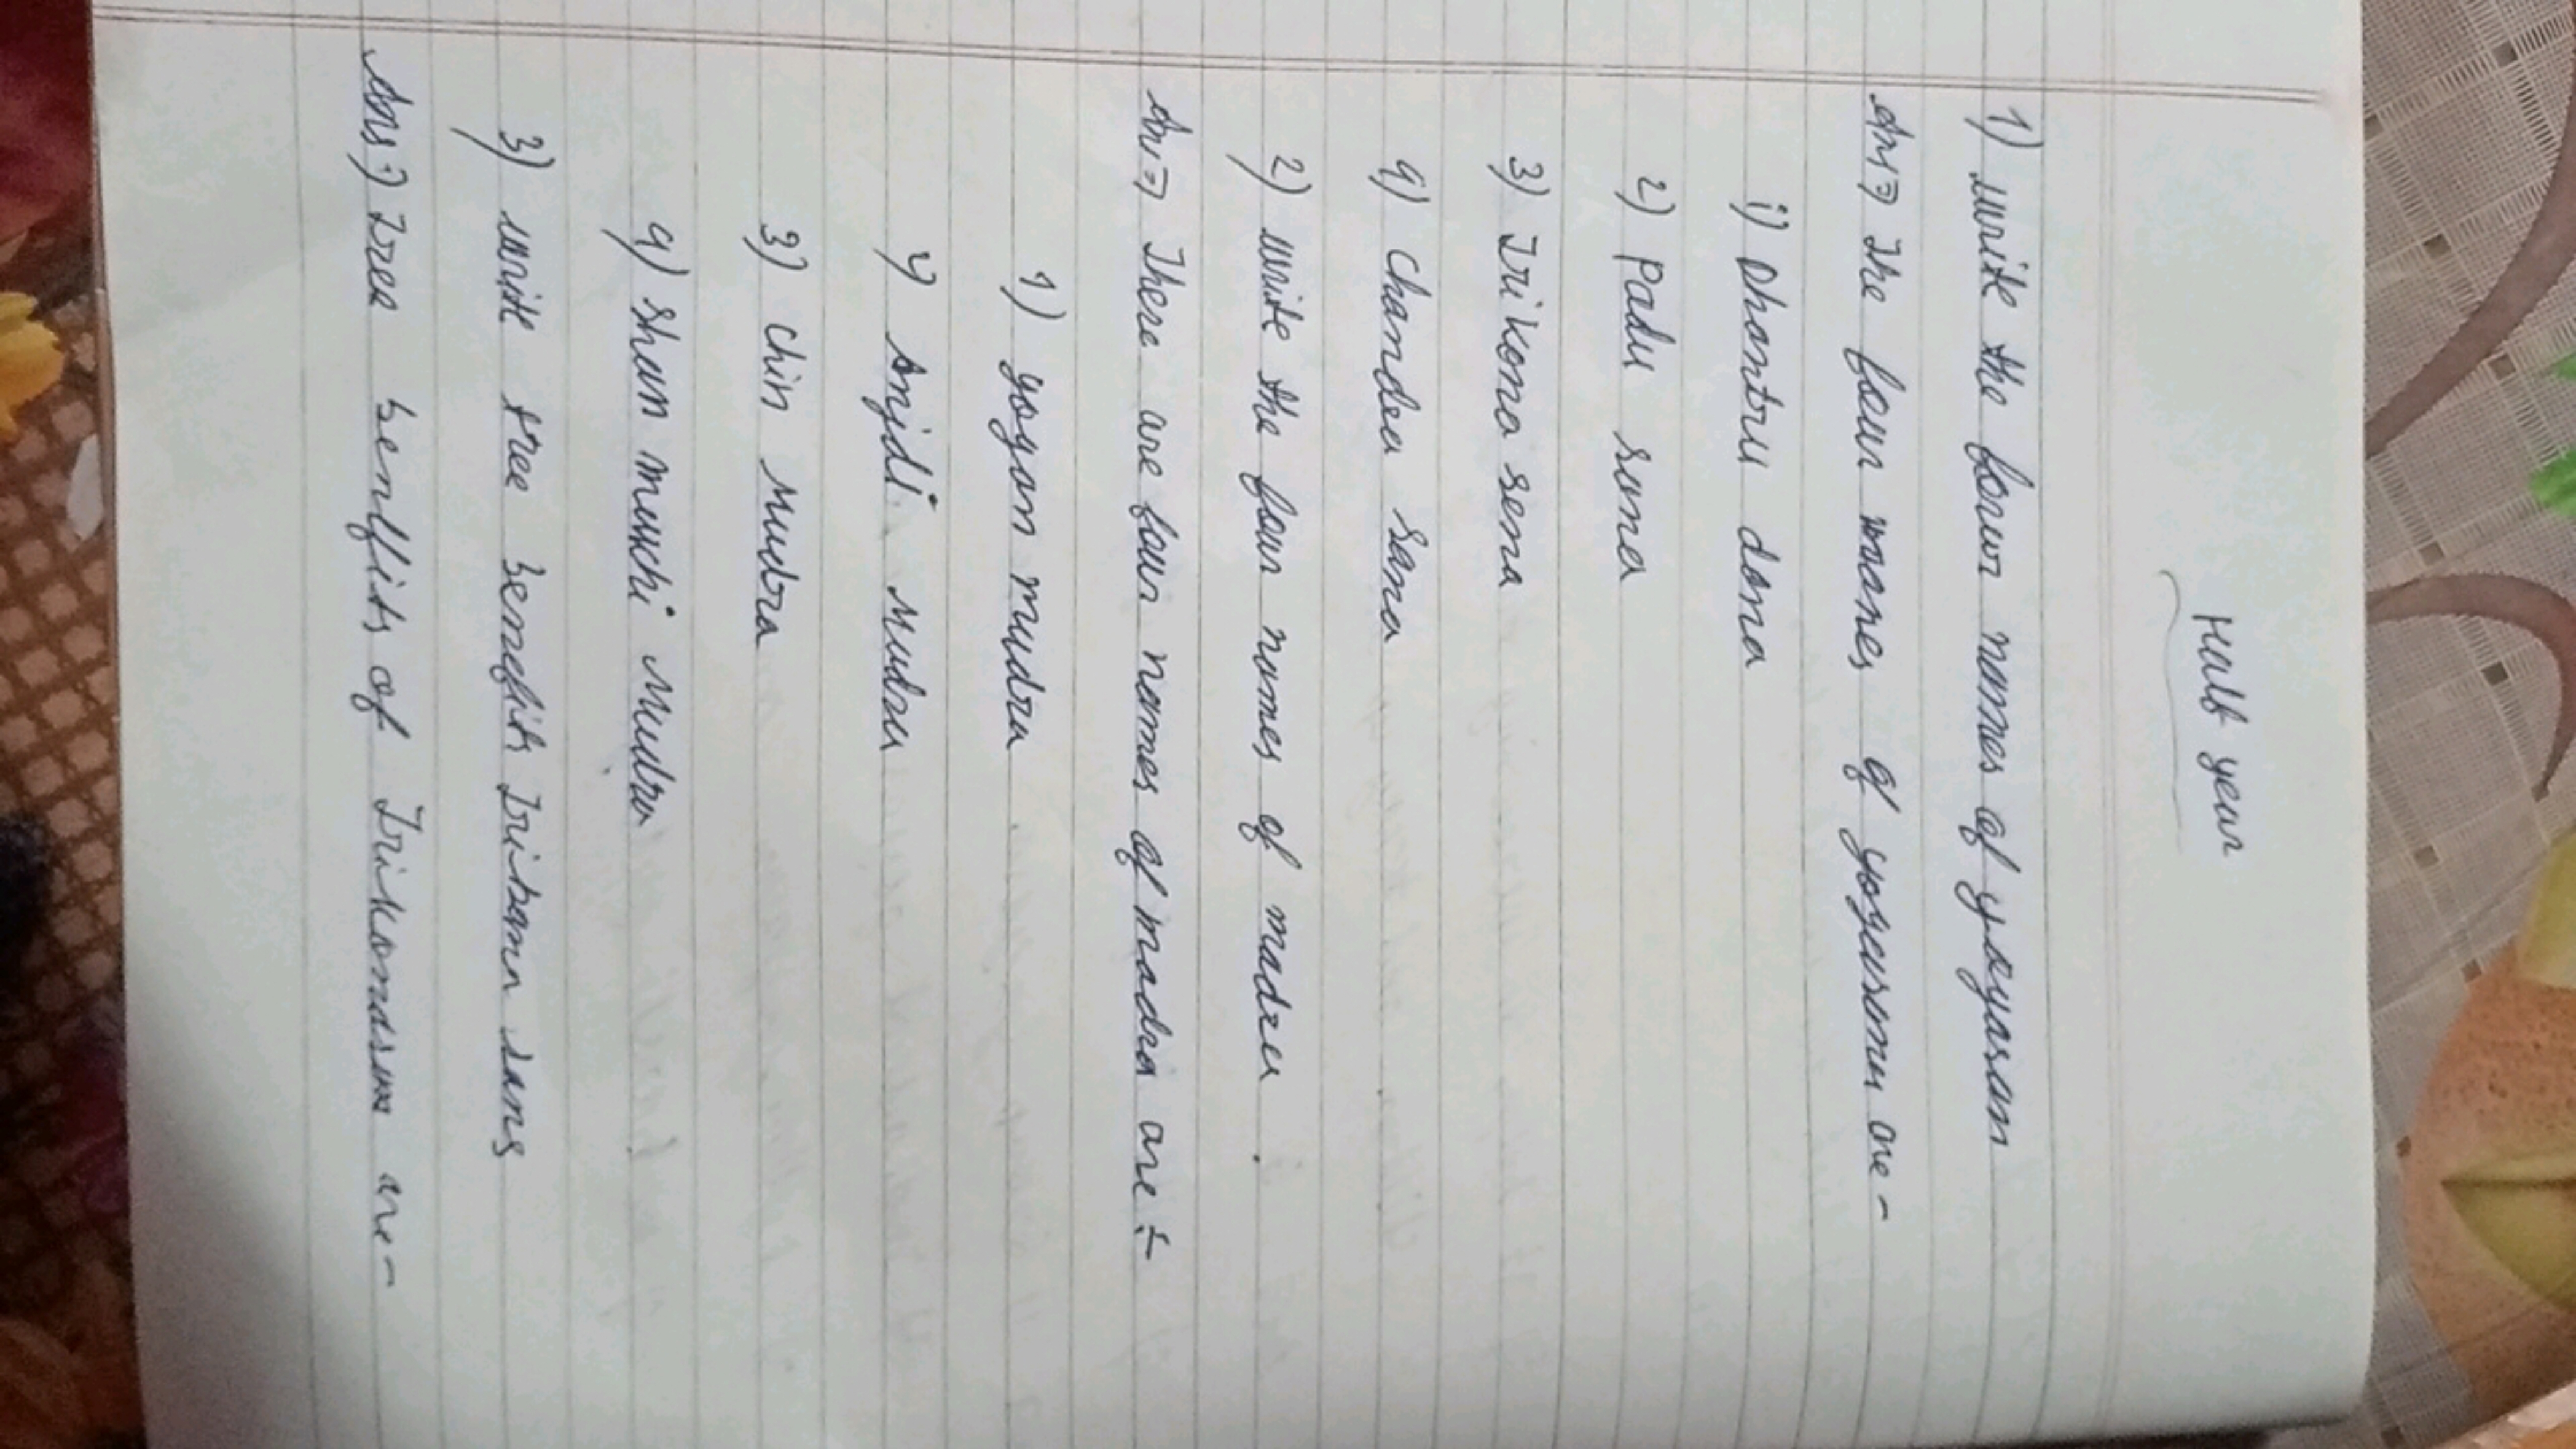 Half year
1) write the four names of yogyasan
Ans⇒ The four manes of yogasamu are-
i) Dhantru dona
2) Padu suna
3) Trikona sena
4) Chandea sana
2) write the four names of madru.
Ans⇒ There are four names of madra are÷
1) yoyan mudra
2) Anjdi Mudra
3) Chin Mudra
4) Shan mukhi Mudra
3) write tree benefits Trikann sans
Ans⇒ Tree benlfits of Trikonasan are-